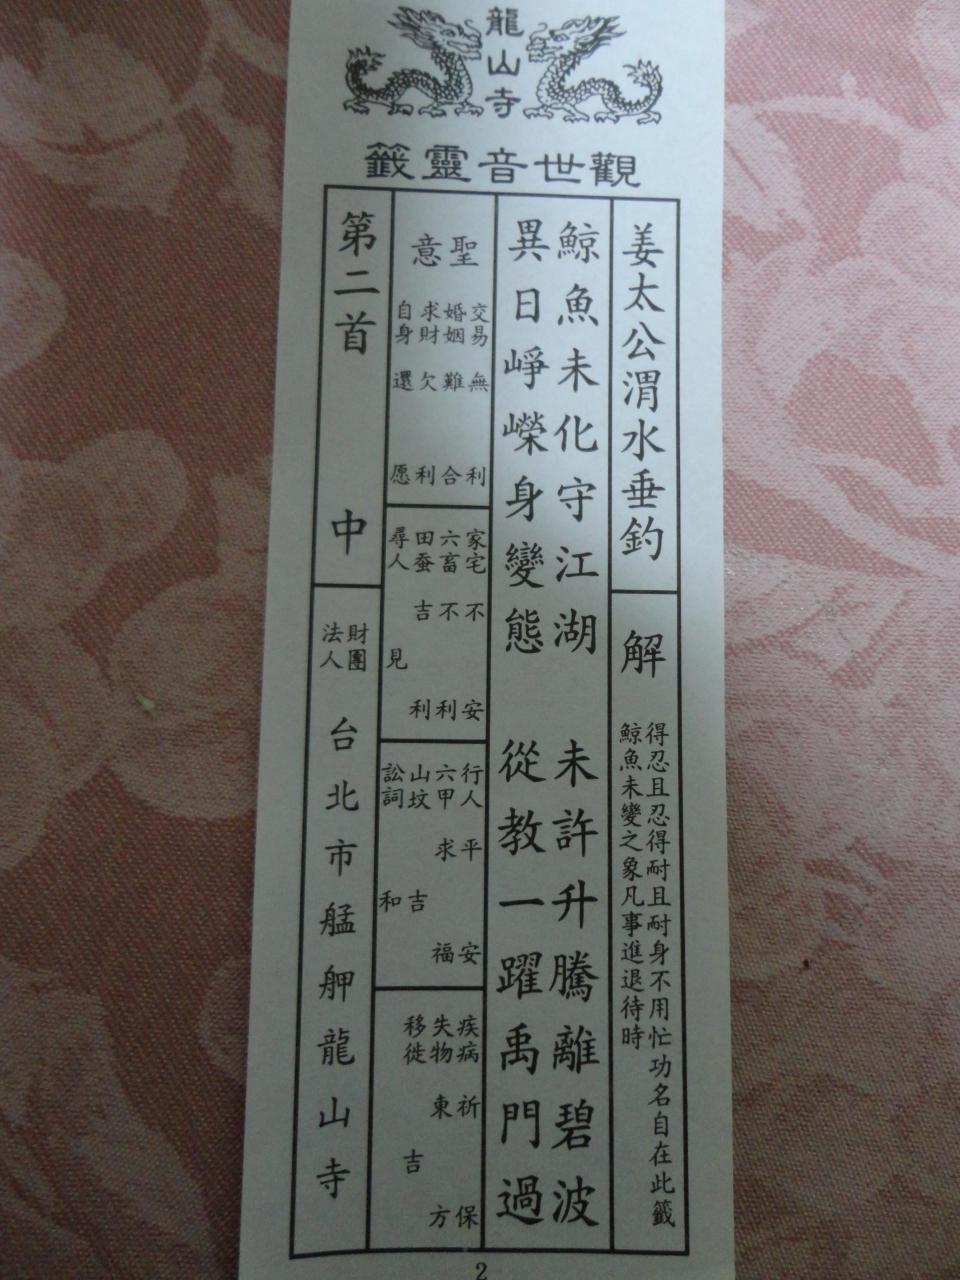 龍山寺
觀世音靈籤
姜太公渭水垂釣
解
得忍且忍得耐且耐身不用忙功名自在此籤
鯨魚未變之象凡事進退待時
鯨魚未化守江湖 未許升騰離碧波
異日崢嶸身變態 從教一躍禹門過
聖意
交易 無利
婚姻 難合
求財 欠利
自身 還愿
家宅 不安
六畜 不利
田蚕 吉利
尋人 見
行人 平安
六甲 求福
山坟 吉
訟詞 和
疾病 祈保
失物 東方
移徙 吉
第二首 中
財團法人
台北市艋舺龍山寺
2